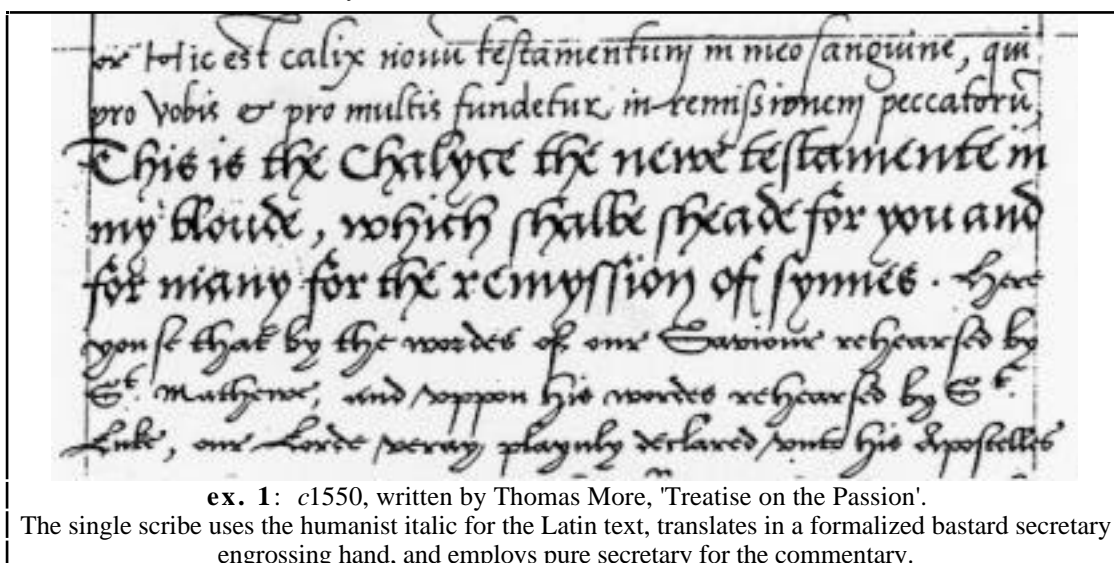 or Hic est calix nouū testamentum in meo sanguine, qui
pro vobis & pro multis fundetur in remissionem peccatorū,
This is the Chalyce the newe testamente in
my bloude, which shalbe sheade for you and
for many for the remyssion of synnes. Here
you se that by the wordes of our Saviour rehearsed by
St. Mathewe, and vppon his wordes rehearsed by St.
Luke, our Lorde veray playnly declared vnto his Apostelles
ex. 1: c1550, written by Thomas More, 'Treatise on the Passion'.
The single scribe uses the humanist italic for the Latin text, translates in a formalized bastard secretary
engrossing hand, and employs pure secretary for the commentary.